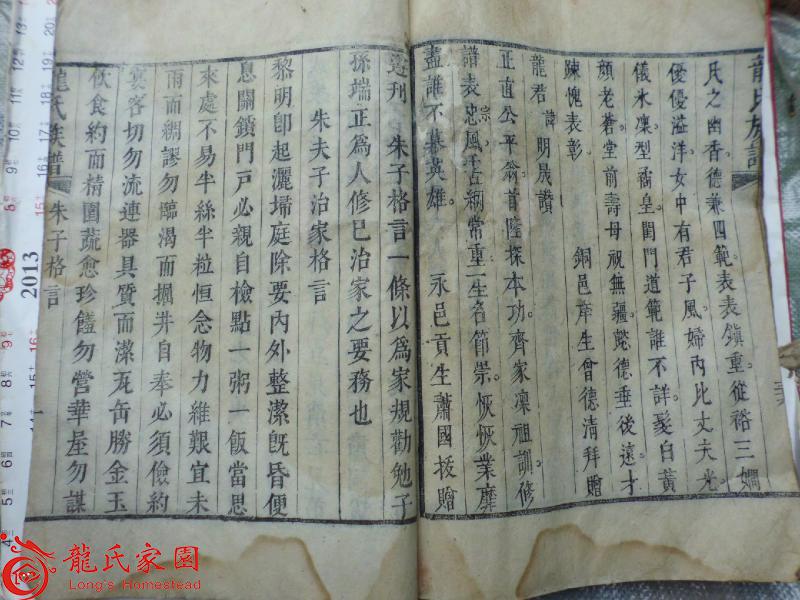 龍氏族譜
氏之幽香德兼四範表表鎮重從裕三嫺
優優溢洋女中有君子風婦內比丈夫光
儀氷凜型喬皇閨門道範誰不詳髮白黃
顏老蒼堂前壽母祝無疆懿德垂後遠才
踈愧表彰 銅邑庠生曾德清拜贈
龍君 諱明晟讚
正直公平翁首隆探本功齊家凜祖訓修
譜表宗風千古綱常重一生名節崇恢恢業靡
盡誰不慕英雄 永邑貢生蕭國授贈
选刊 朱子格言一條以爲家規勸勉子
孫瑞正爲人修已治家之要務也
朱夫子治家格言
黎明卽起灑埽庭除要內外整潔旣昏便
息關鎖門戶必親自檢點一粥一飯當思
來處不易半絲半粒恒念物力維艱宜未
雨而綢謬勿臨渴而掘井自奉必須儉約
宴客切勿流連器具質而潔瓦缶勝金玉
飲食約而精園蔬愈珍饈勿營華屋勿謀
龍氏族譜 朱子格言 一
2013
龍氏家園
Long's Homestead